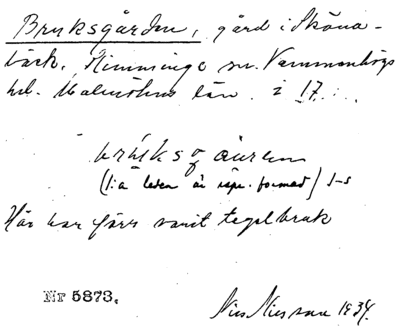 Bruksgården, gård i Sköna-
bäck, Slimminge sn. Vemmenhögs
hd. Malmöhus län. i 17. :.
brúksgåuren
(1:a leden är rspr. formed) J-s
Här har förr varit tegelbruk
Nr 5873.
Nils Nilsson 1934.